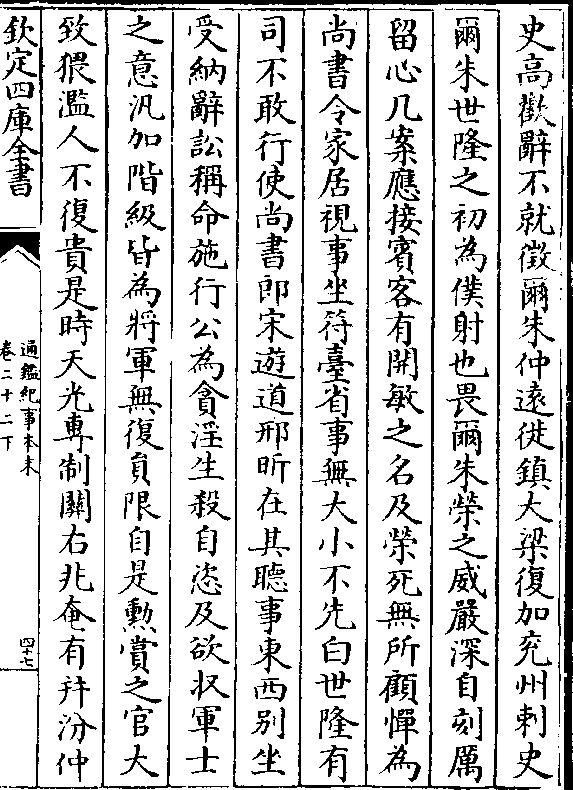 史高歡辭不就徵爾朱仲遠徙鎮大梁復加兖州刺史
爾朱世隆之初為僕射也畏爾朱榮之威嚴深自刻厲
留心几案應接賓客有開敏之名及榮死無所顧憚為
尚書令家居視事坐符臺省事無大小不先白世隆有
司不敢行使尚書郎宋遊道邢昕在其聽事東西别坐
受納辭訟稱命施行公為貪淫生殺自恣及欲收軍士
之意汎加階級皆為將軍無復員限自是勲賞之官大
致猥濫人不復貴是時天光專制關右兆奄有并汾仲
欽定四庫全書
通鑑紀事本末
卷二十二下
四十七